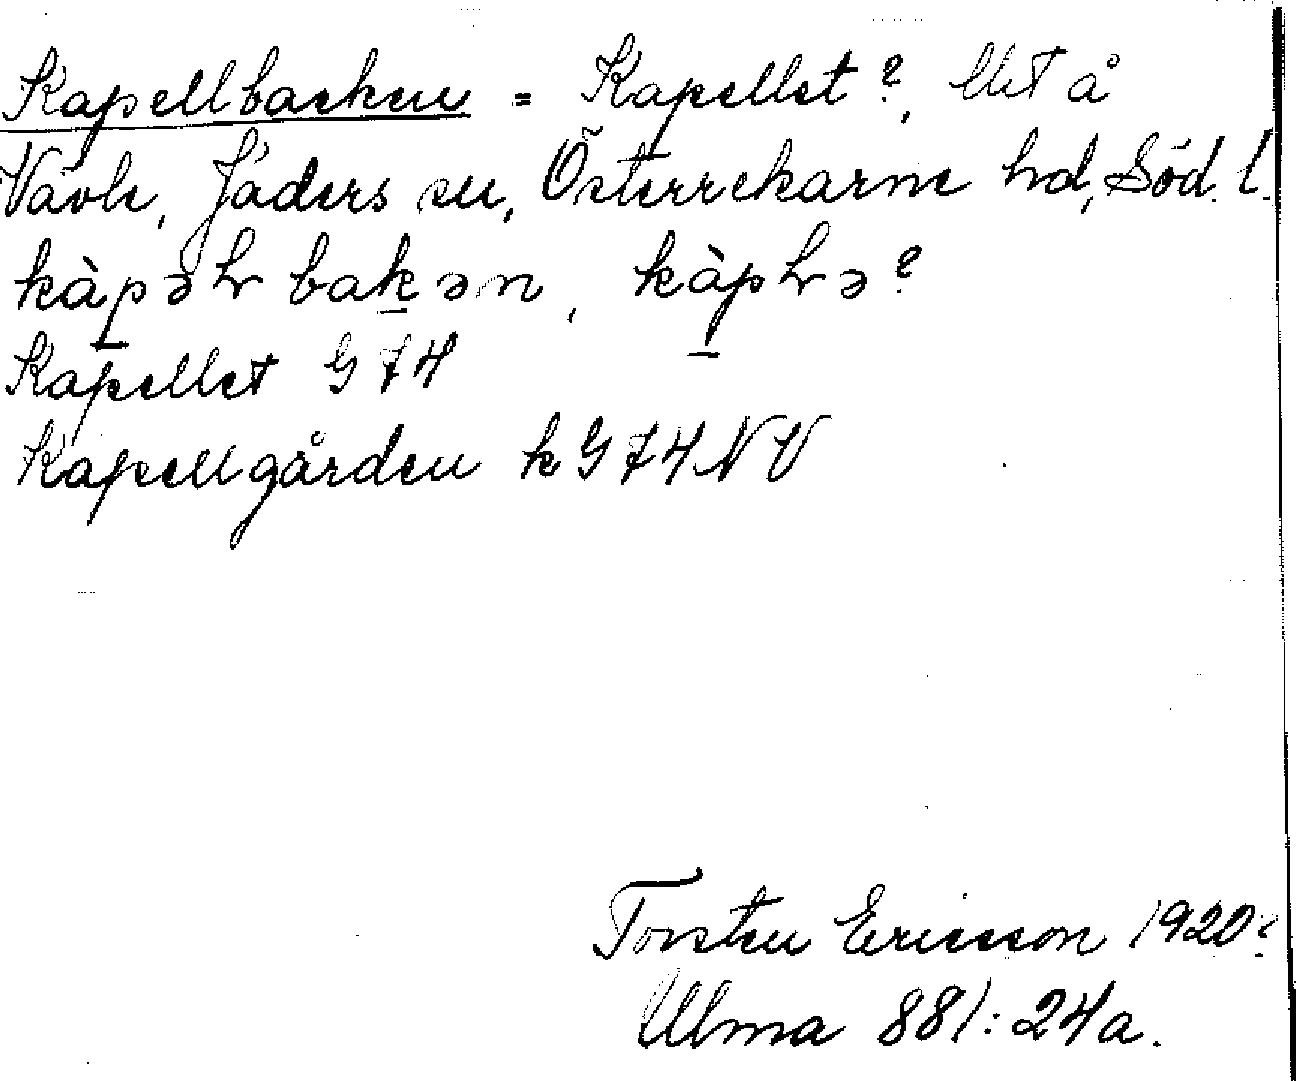 Kapellbacken = Kapellet?, Ust å
Vävle, Jäders sn, Österrekarne hd, Söd. l.
kàpəlrbakən, kàplrə?
Kapellet G 74
Kapellgården k G 74 NV
Torsten Ericsson 1920?
Ulma 881:24a.